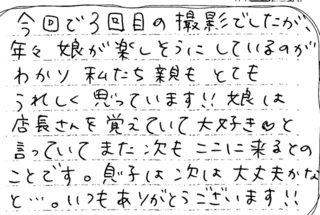 今回で3回目の撮影でしたが、
年々娘が楽しそうにしているのが
わかり 私たち親も とても
うれしく 思っています!! 娘は
店長さんを覚えていて大好き♡と
言っていて また次も ここに来るとの
ことです。息子は 次は 大丈夫かな
と…。いつもありがとうございます!!